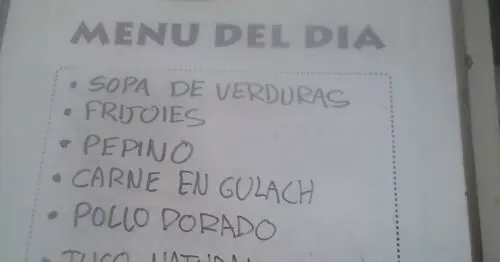 MENU DEL DIA
• SOPA DE VERDURAS
• FRIJOIES
• PEPINO
• CARNE EN GULACH
• POLLO DORADO